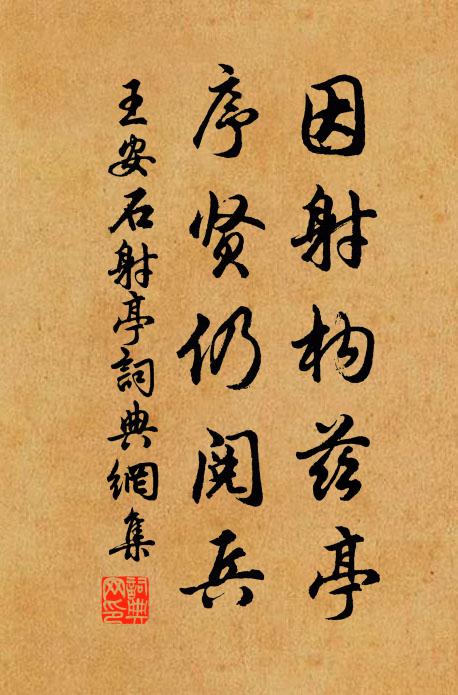 因射构兹亭
序贤仍阅兵
王安石射亭詞典網集
詞典網印